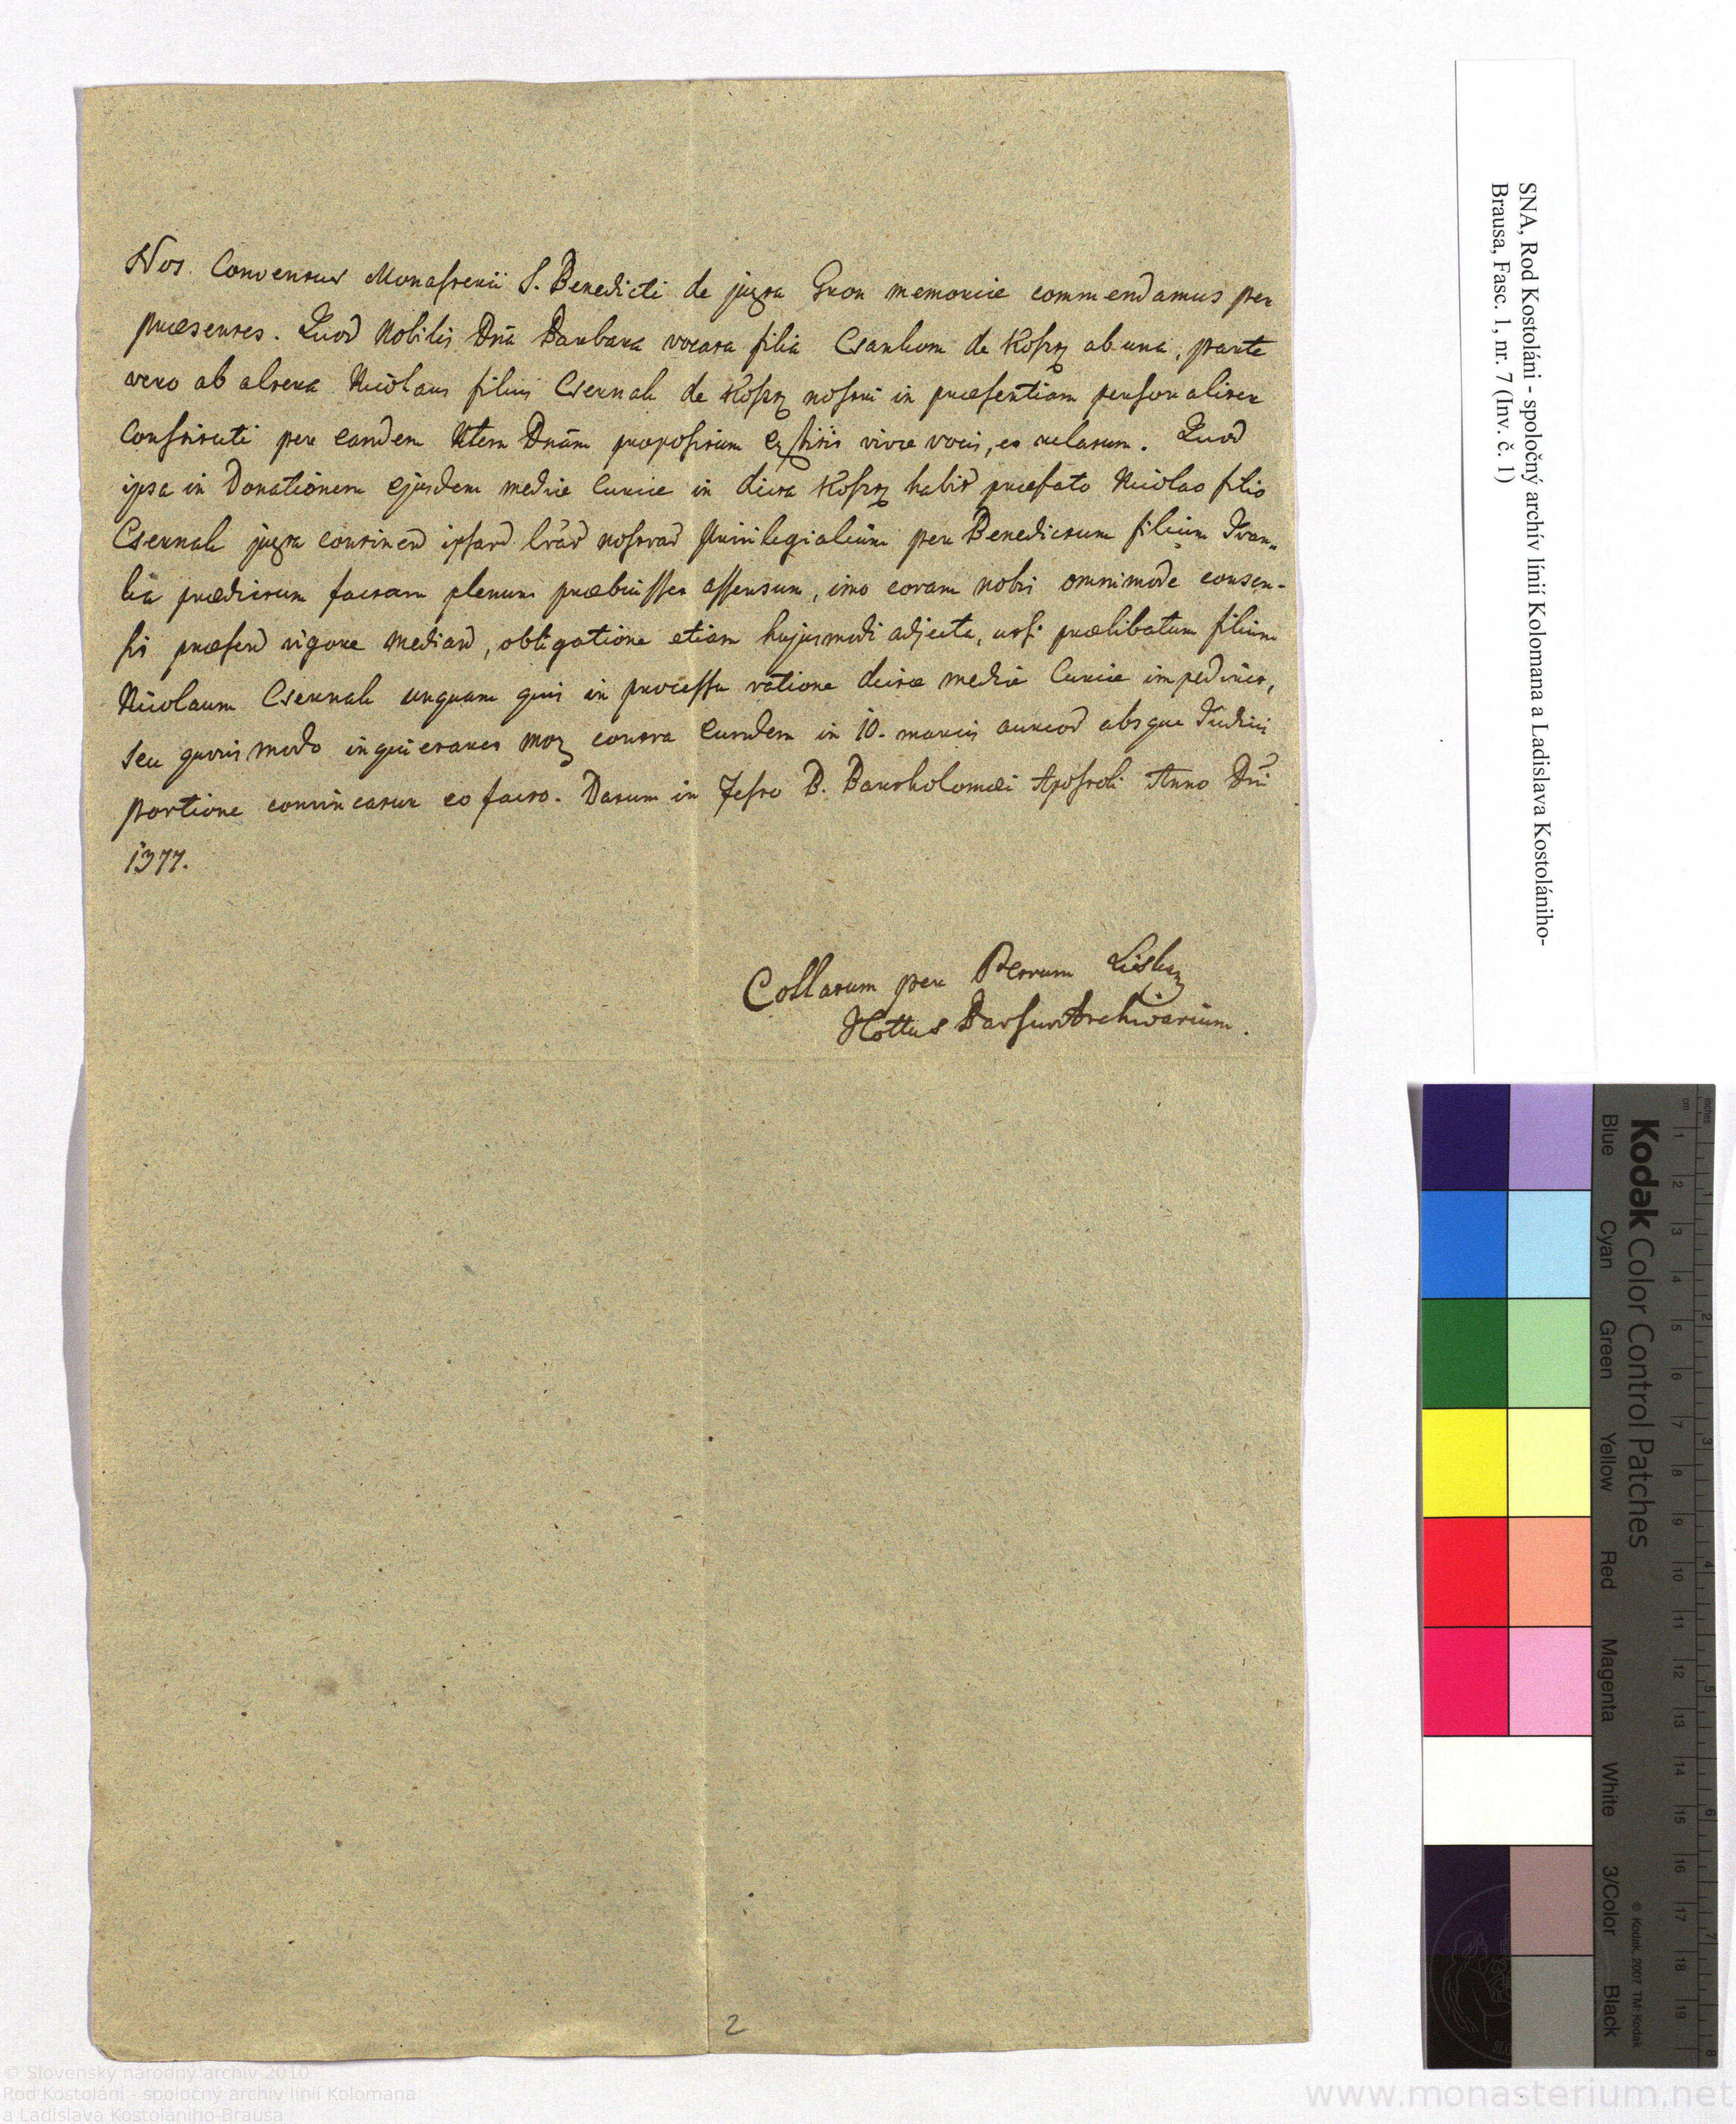 Nos Conventus Monasterii S. Benedicti de juxta Gron memoriæ commendamus per
præsentes. Quod Nobilis Dña Barbara vocata filia Csankom de Koszt ab una, parte
vero ab altera Nicolaus filius Csernak de Koszt nostri in præsentiam personaliter
Constituti per eandem Dnãm propositum vivæ vocis, et relatum. Quod
ipsa in Donationem ejusdem mediæ Curiæ in dicta præfato Nicolao filio
Csernak juxta nostrar Privilegialium per Benedictum filium Ivan=
ka prædictum factam plenum præbuisset assensum, imo coram nobis omnimode consen-
sit vigore mediand, obligatione etiam hujusmodi adjecta, prælibatum filium
Nicolaum Csernak unquam quis in processu ratione dictæ mediæ Curiæ impediret,
seu quovis modo inquietaret mox contra Eundem in 10. marcis absque Judicii
portione convincatur eo facto. Datum in Festo B. Bartholomæi Apostoli Anno Dñi
1377.
Collatum per Petrum
Archivarium.
2
SNA, Rod Kostoláni - spoločný archív línií Kolomana a Ladislava Kostolániho-
Brausa, Fasc. 1, nr. 7 (Inv. č. 1)
Kodak Color Control Patches
Blue Cyan Green Yellow Red Magenta White 3/Color Black
© Kodak, 2007 TM: Kodak
inches 1 2 3 4 5 6 7 8
cm 1 2 3 4 5 6 7 8 9 10 11 12 13 14 15 16 17 18 19
© Slovenský národný archív 2010
Rod Kostoláni - spoločný archív línií Kolomana
a Ladislava Kostolániho-Brausa
www.monasterium.net